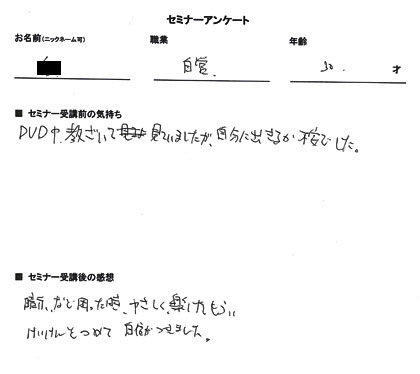 セミナーアンケート
お名前(ニックネーム可) 職業 年齢
自営. 30. 才
■ セミナー受講前の気持ち
DVDや、教ざいで 見ていましたが、自分に出きるか 不安でした。
■ セミナー受講後の感想
暗示、など 困った時、やさしく、
けいけんをつめて 自信がつきました。